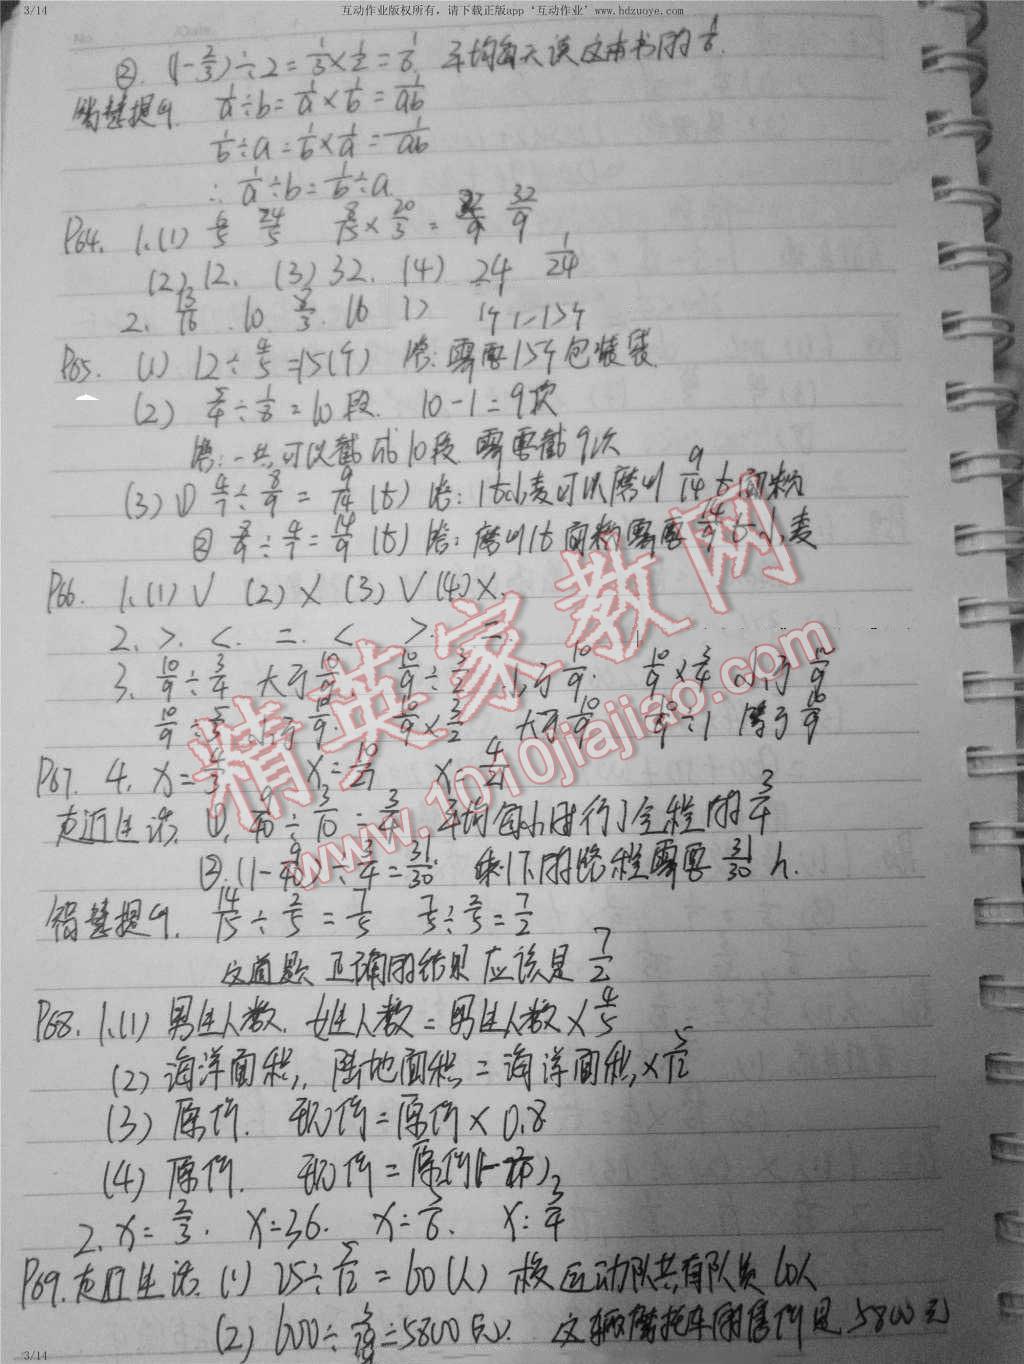 3/14
互动作业版权所有，请下载正版app‘互动作业’www.hdzuoye.com
② (1-2/3)÷2=1/3×1/2=1/6. 平均每天读这本书的1/6.
智慧提升. 1/a÷b=1/a×1/b=1/ab
1/b÷a=1/b×1/a=1/ab
∴ 1/a÷b=1/b÷a.
P64. 1.(1) 6/5 24/5 8/15×20/3= 32/9
(2) 12. (3) 32. (4) 24 1/24
2. 13/16 10. 8/3. 16
P65. (1) 12÷4/5=15(个) 答:需要15个包装袋.
(2) 5/4÷1/8=10段. 10-1=9次
答:一共可以截成10段 需要截9次
(3) ① 4/7÷8/9=9/14(t) 答:1t小麦可以磨出9/14t面粉
② 8/9÷4/7=14/9(t) 答:磨出1t面粉需要14/9t小麦
P66. 1.(1)√ (2)× (3)√ (4)×.
2. >. <. =. < >. =.
3. 10/9÷3/4 大于10/9 10/9÷3/2 小于10/9. 10/9×3/4 小于10/9
10/9÷5/3 小于10/9. 10/9×3/2 大于10/9 10/9÷1 等于10/9
P67. 4. x=4/3 x=10/27 x=4/21
走近生活. ①. 9/40÷3/10=3/4 平均每小时行了全程的3/4
②. (1-9/40)÷3/4=31/30. 剩下的路程需要31/30 h.
智慧提升. 14/15÷2/5=7/3 7/5÷2/5=7/2
这道题正确的结果应该是7/2
P68. 1.(1) 男生人数. 女生人数=男生人数×4/5
(2) 海洋面积, 陆地面积=海洋面积×5/12
(3) 原价. 现价=原价×0.8
(4) 原价. 现价=原价
2. x=2/3. x=36. x=5/6. x=3/4
P69. 走近生活. (1) 25÷5/12=60(人) 校运动队共有队员60人
(2) =5800(元). 这辆摩托车的售价是5800元
精英家教网
www.1010jiajiao.com
3/14